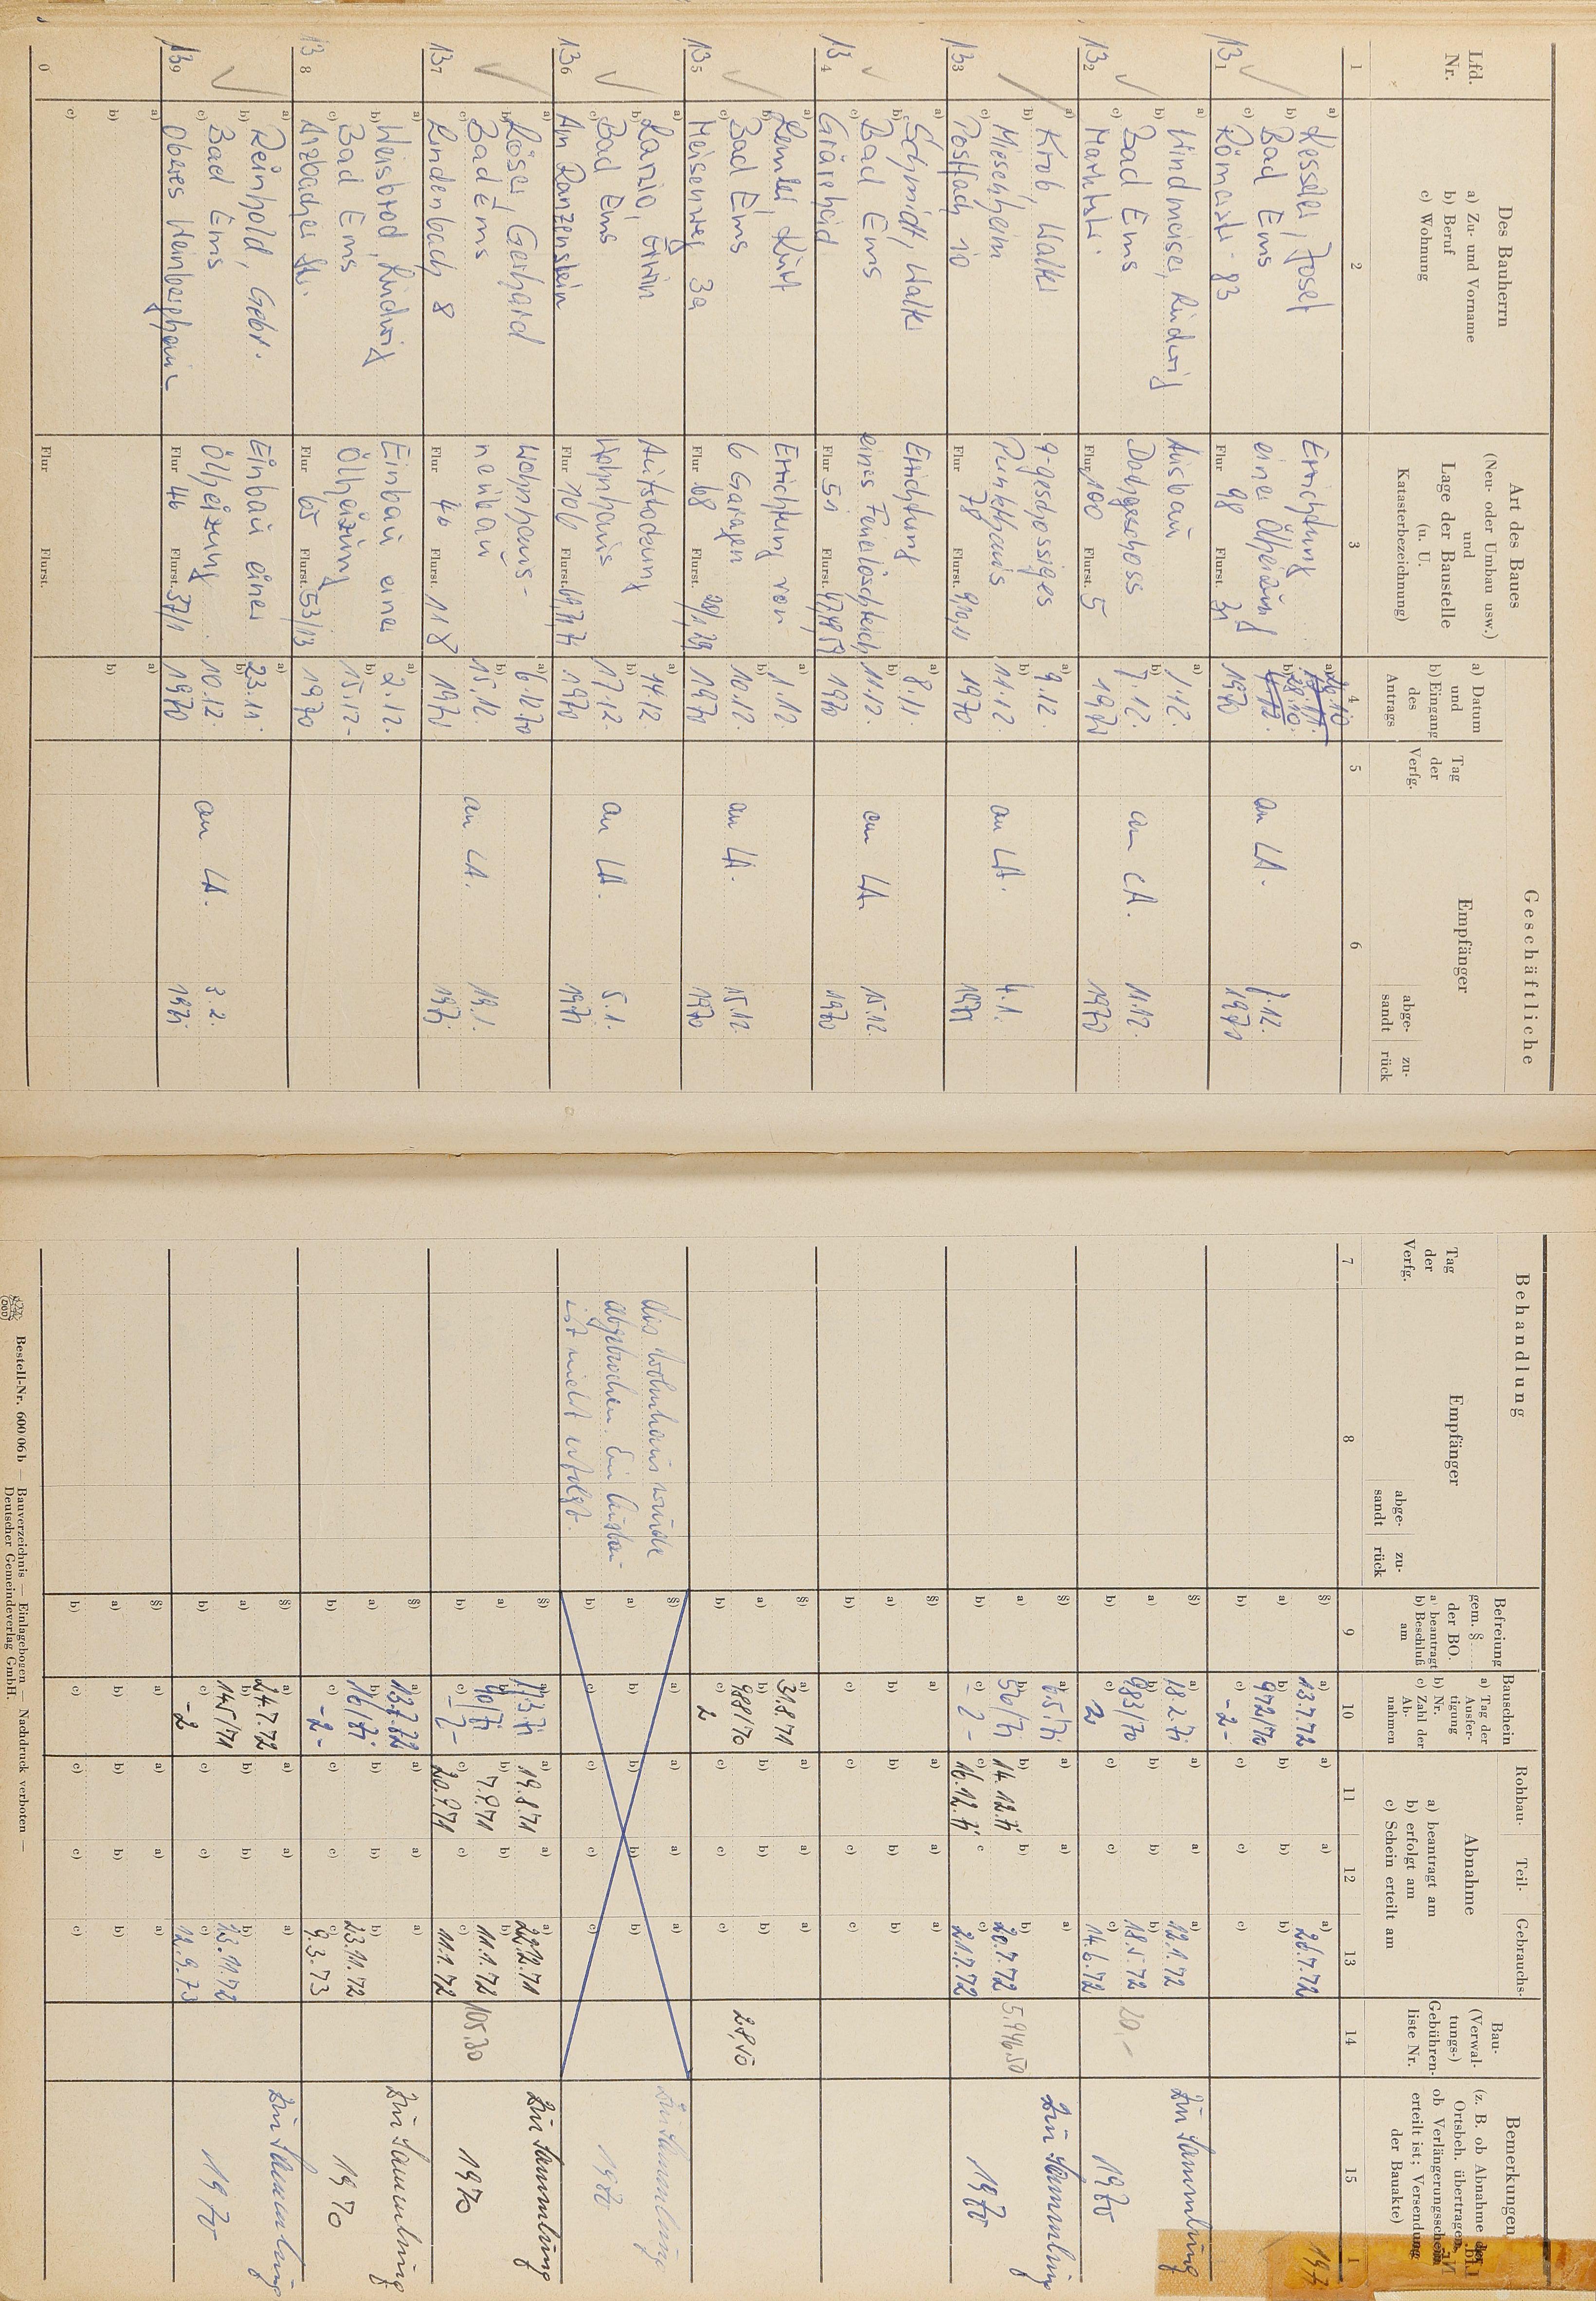 Geschäftliche
Lfd.
Nr.
Des Bauherrn
a) Zu- und Vorname
b) Beruf
c) Wohnung
Art des Baues
(Neu- oder Umbau usw.)
und
Lage der Baustelle
(u. U.
Katasterbezeichnung)
a) Datum
und
b) Eingang
des
Antrags
Tag
der
Verfg.
Empfänger
abge-
sandt
zu-
rück
1 2 3 4 5 6
131
a) Kessler, Josef
b) Bad Ems
c) Römerstr. 83
Errichtung
einer Ölheizung
Flur 98 Flurst. 31
28.10.
1970
an LA.
7.12.
1970
132
a) Hindmeiser, Ludwig
b) Bad Ems
c) Marktstr.
Ausbau
Dachgeschoss
Flur 100 Flurst. 5
1.12.
7.12.
1970
an LA.
11.12.
1970
133
a) Krob, Walter
b) Miesenheim
c) Postfach 10
9-geschossiges
Punkthaus
Flur 78 Flurst. 9,10,11
9.12.
11.12.
1970
an LA.
4.1.
1971
134
a) Schmidt, Walter
b) Bad Ems
c)
Errichtung
eines Feuerlöschteich
Flur 51 Flurst. 47,48,57
8.11.
11.12.
1970
an LA.
15.12.
1970
135
a) Lemler, Kurt
b) Bad Ems
c) Meisenweg 3a
Errichtung von
6 Garagen
Flur 68 Flurst. 28/1,29
1.12.
10.12.
1970
an LA.
15.12.
1970
136
a) Lanzio, Erwin
b) Bad Ems
c) Am Ranzenstein
Aufstockung
Wohnhaus
Flur 106 Flurst.
14.12
17.12
1970
an LA.
5.1.
1971
137
a) Löser, Gerhard
b) Bad Ems
c) Lindenbach 8
Wohnhaus-
neubau
Flur 40 Flurst. 118
6.12.70
15.12.
1970
an LA.
19.1.
1971
138
a) Weisbrod, Ludwig
b) Bad Ems
c) Arzbacher Str.
Einbau einer
Ölheizung
Flur 65 Flurst. 53/13
2.12.
15.12.
1970
139
a) Reinhold, Gebr.
b) Bad Ems
c) Oberes Weinberghaus
Einbau einer
Ölheizung
Flur 46 Flurst. 37/1
23.11.
10.12.
1970
an LA.
3.2.
1971
0
a)
b)
c)
Flur Flurst.
a)
b)
Behandlung
Tag
der
Verfg.
Empfänger
abge-
sandt
zu-
rück
Befreiung
gem. §
der BO.
a) beantragt
b) Beschluß
am
Bauschein
a) Tag der
Ausfer-
tigung
b) Nr.
c) Zahl der
Ab-
nahmen
Rohbau-
Teil-
Gebrauchs-
Abnahme
a) beantragt am
b) erfolgt am
c) Schein erteilt am
Bau-
(Verwal-
tungs-)
Gebühren-
liste Nr.
Bemerkungen
(z. B. ob Abnahme der
Ortsbeh. übertragen,
ob Verlängerungsschein
erteilt ist; Versendung
der Bauakte)
7 8 9 10 11 12 13 14 15
a) 13.7.72
b) 972/70
c) -2-
a) 26.7.72
a) 18.2.71
b) 983/70
c) 2
a) 12.1.72
b) 18.5.72
c) 14.6.72
20,-
Zur Sammlung
1970
b) 570/71
c) -2-
b) 14.12.71
c) 16.12.71
b) 20.7.72
c) 21.7.72
5.946,50
Zur Sammlung
1970
a) 31.8.71
b) 988/70
c) 2
28,50
das Wohnhaus wurde
abgebrochen. Ein Ausbau
ist nicht erfolgt.
Zur Sammlung
1970
b) 90/71
c) -2-
a) 19.8.71
b) 7.9.71
c) 20.9.71
a) 22.12.71
b) 11.1.72
c) 11.1.72
105,30
Zur Sammlung
1970
a) 13.7.72
b) 16/71
c) -2-
b) 23.11.72
c) 9.3.73
Zur Sammlung
1970
a) 24.7.72
b) 145/71
c) -2
b) 23.11.72
c) 12.9.73
Zur Sammlung
1970
Bestell-Nr. 600/06b — Bauverzeichnis — Einlagebogen — Nachdruck verboten —
Deutscher Gemeindeverlag GmbH.